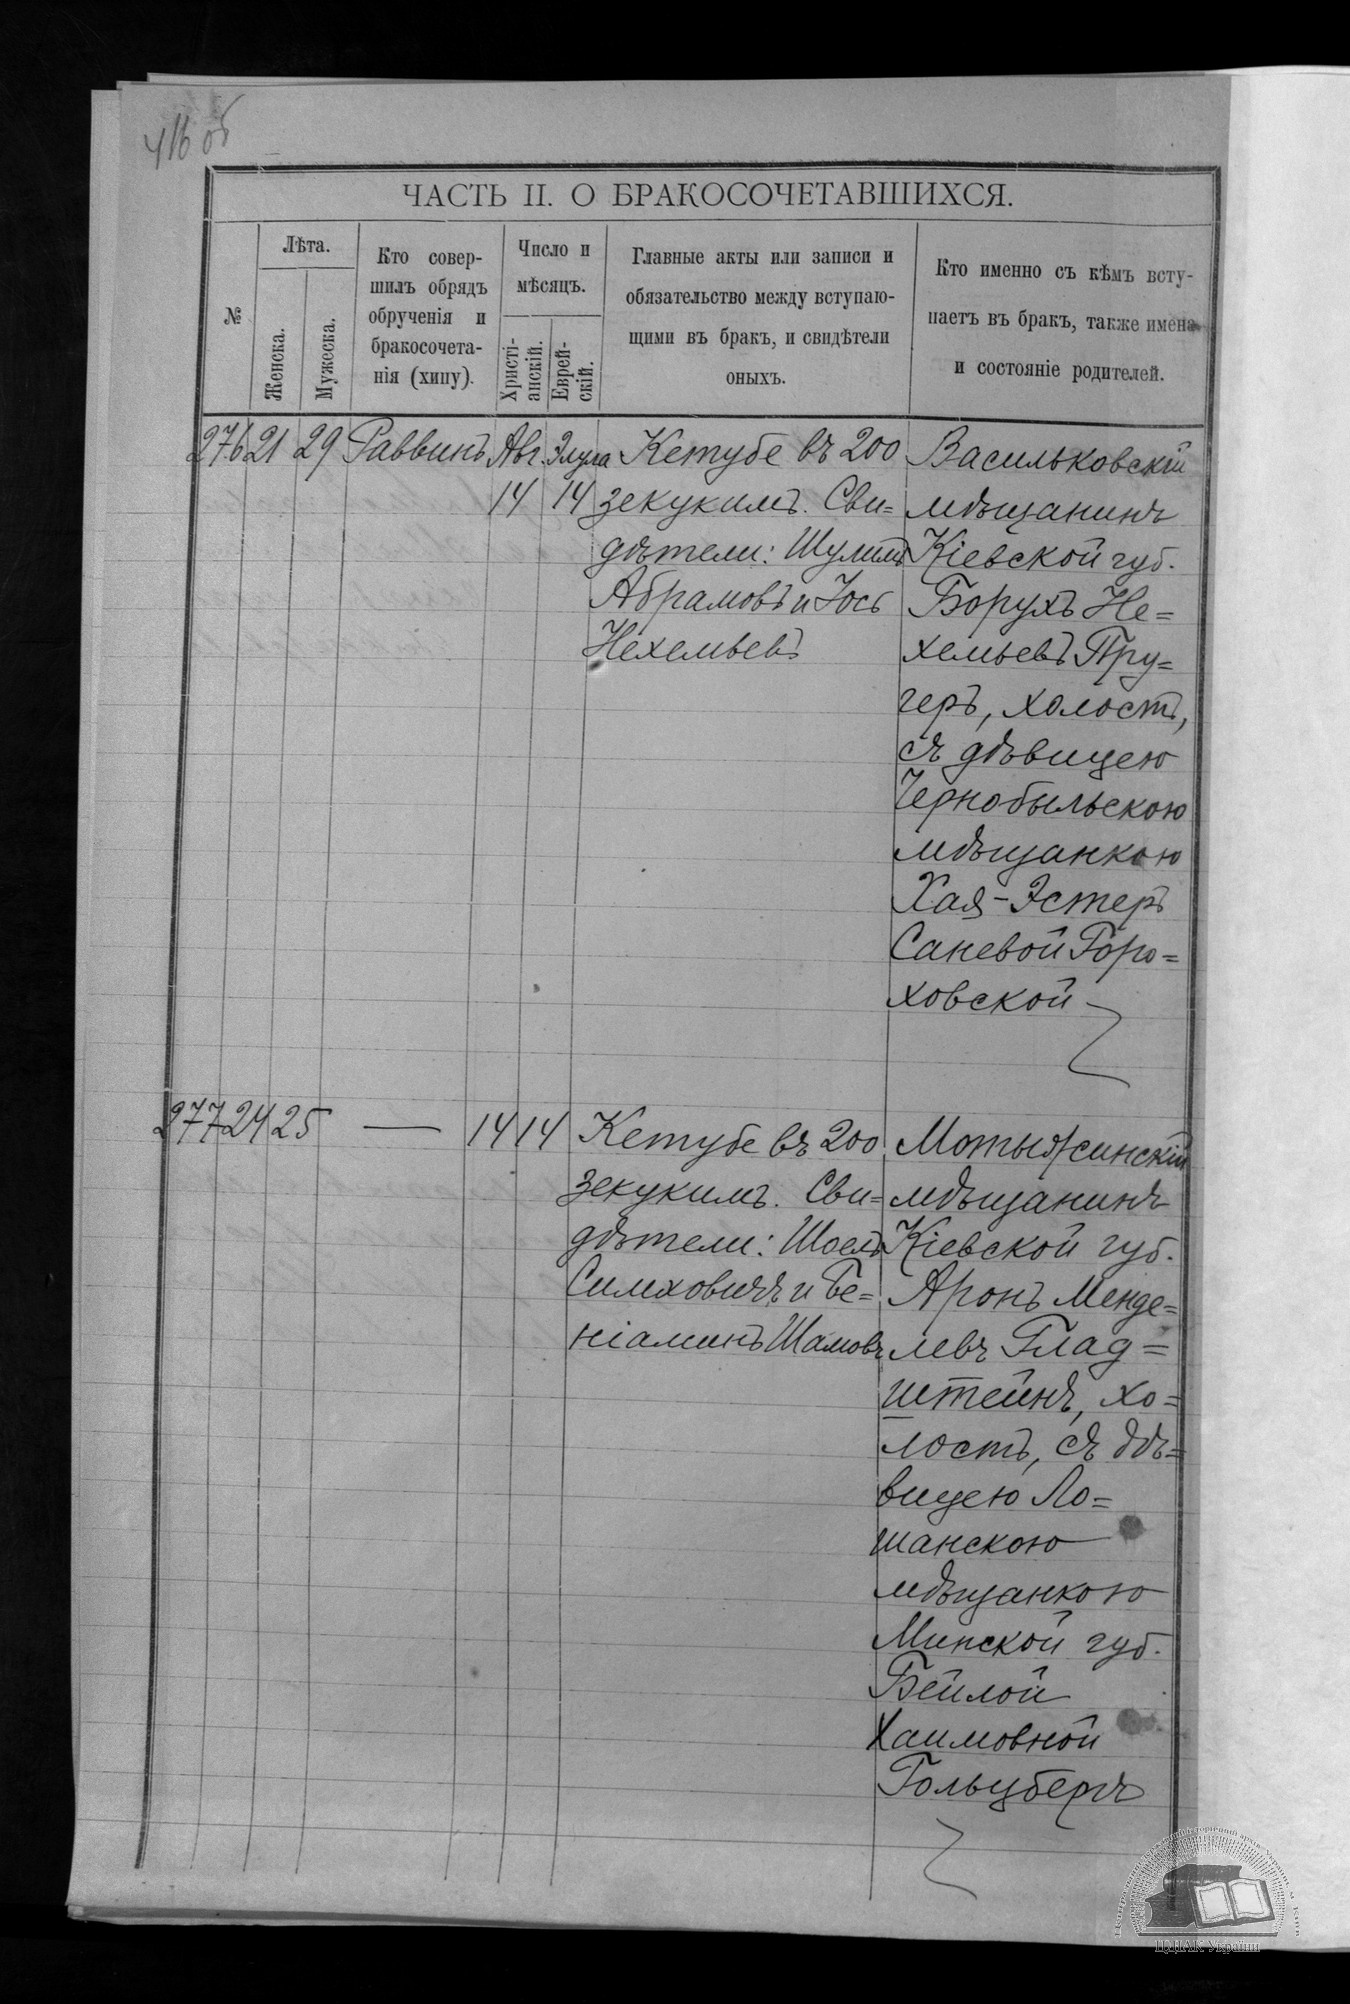 416 об
ЧАСТЬ II. О БРАКОСОЧЕТАВШИХСЯ.
№
Лѣта.
Женска.
Мужеска.
Кто совер-
шилъ обрядъ
обрученія и
бракосочета-
нія (хипу).
Число и
мѣсяцъ.
Христі-
анскій.
Еврей-
скій.
Главные акты или записи и
обязательство между вступаю-
щими въ бракъ, и свидѣтели
оныхъ.
Кто именно съ кѣмъ всту-
паетъ въ бракъ, также имена
и состояніе родителей.
276 21 29 Раввинъ Авг. Элула
14 14
Кетубе въ 200
зекукимъ. Сви=
дѣтели: Шулимъ
Абрамовъ и Іось
Нехемьевъ
Васильковскій
мѣщанинъ
Кіевской губ.
Борухъ Не=
хемьевъ Пру=
геръ, холостъ,
съ дѣвицею
Чернобыльскою
мѣщанкою
Хая-Эстеръ
Саневой Горо=
ховской
277 24 25 — 14 14
Кетубе въ 200
зекукимъ. Сви=
дѣтели: Шоелъ
Симховичъ и Бе=
ніаминъ Шамовъ
Мотыжинскій
мѣщанинъ
Кіевской губ.
Аронъ Менде=
левъ Глад=
штейнъ, хо=
лостъ, съ дѣ=
вицею Ло=
шанскою
мѣщанкою
Минской губ.
Бейлой
Хаимовной
Гольцбергъ
ЦДІАК України